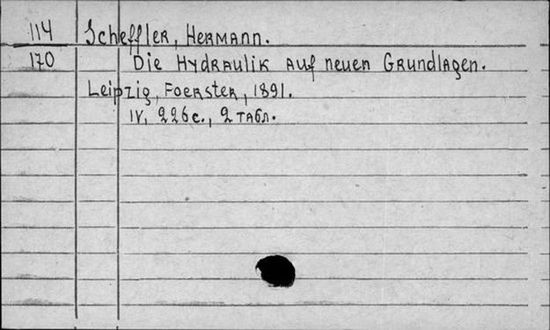 114 Scheffler, Hermann.
170 Die Hydraulik auf neuen Grundlagen.
Leipzig, Foerster, 1891.
IV, 226 с., 2 табл.